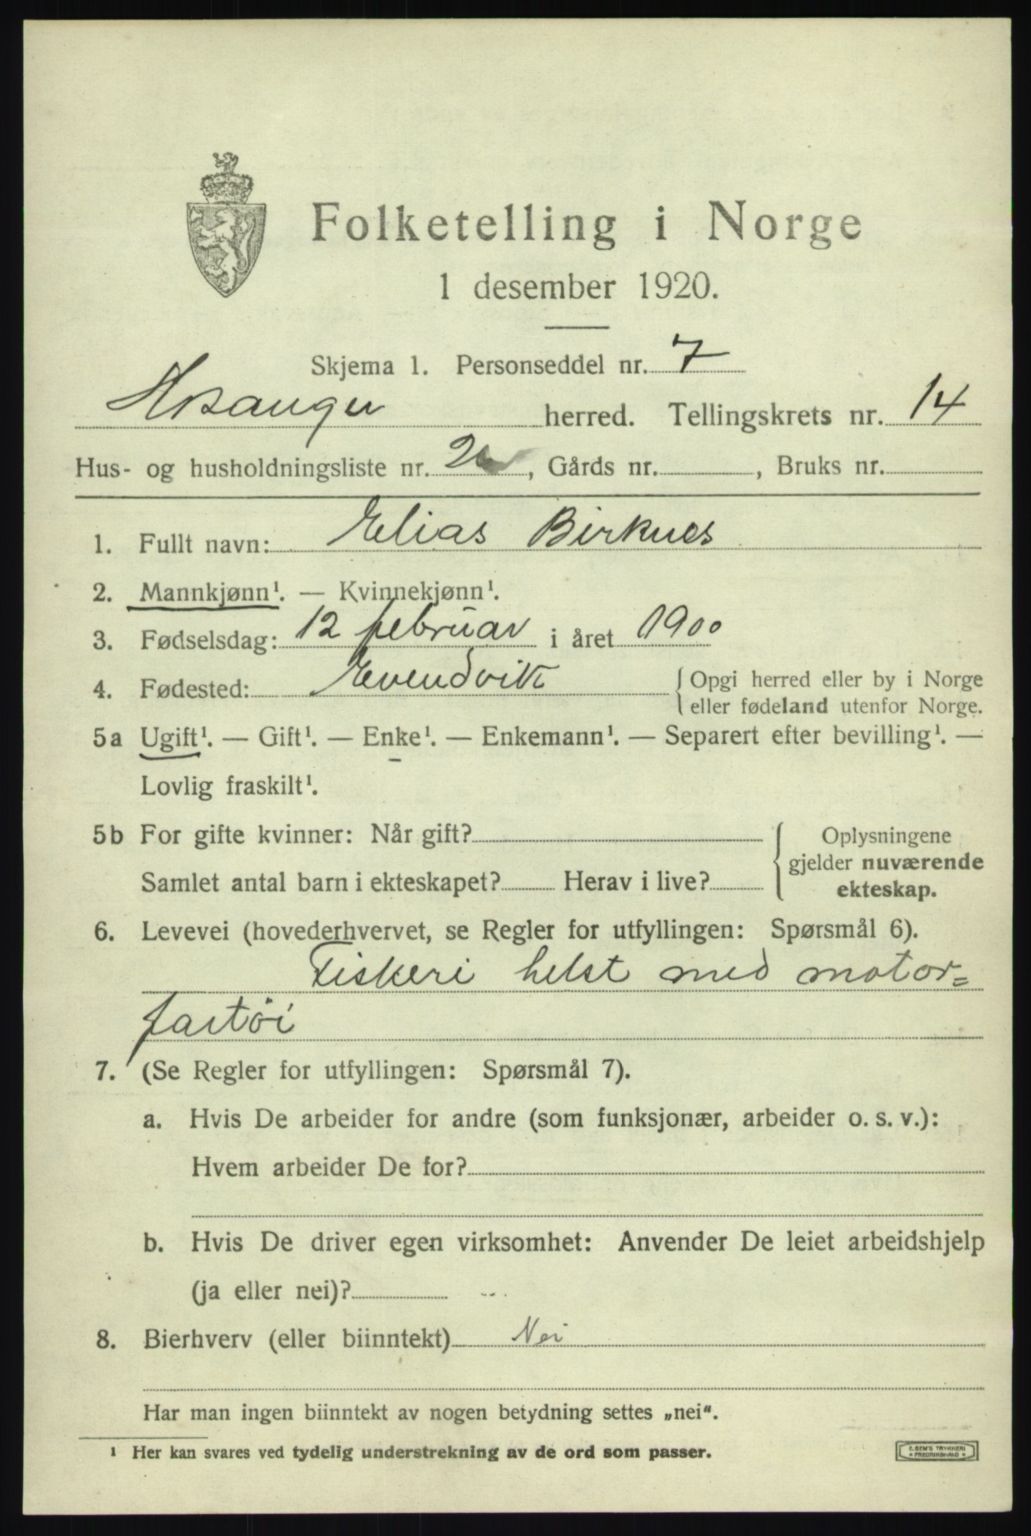 Folketelling i Norge
1 desember 1920.
Skjema 1. Personseddel nr. 7
Hosanger herred. Tellingskrets nr. 14
Hus- og husholdningsliste nr. 2 , Gårds nr. , Bruks nr.
1. Fullt navn: Elias Birknes
2. Mannkjønn¹. — Kvinnekjønn¹.
3. Fødselsdag: 12 februar i året 1900
4. Fødested: Evendvik { Opgi herred eller by i Norge
eller fødeland utenfor Norge.
5a Ugift¹. — Gift¹. — Enke¹. — Enkemann¹. — Separert efter bevilling¹. —
Lovlig fraskilt¹.
5b For gifte kvinner: Når gift? { Oplysningene
gjelder nuværende
Samlet antal barn i ekteskapet? Herav i live?
ekteskap.
6. Levevei (hovederhvervet, se Regler for utfyllingen: Spørsmål 6).
Fiskeri helst med motor=
fartöi
7. (Se Regler for utfyllingen: Spørsmål 7).
a. Hvis De arbeider for andre (som funksjonær, arbeider o. s. v.):
Hvem arbeider De for?
b. Hvis De driver egen virksomhet: Anvender De leiet arbeidshjelp
(ja eller nei)?
8. Bierhverv (eller biinntekt) Nei
Har man ingen biinntekt av nogen betydning settes „nei“.
¹ Her kan svares ved tydelig understrekning av de ord som passer.
E. SEM'S TRYKKERI
FREDRIKSHALD